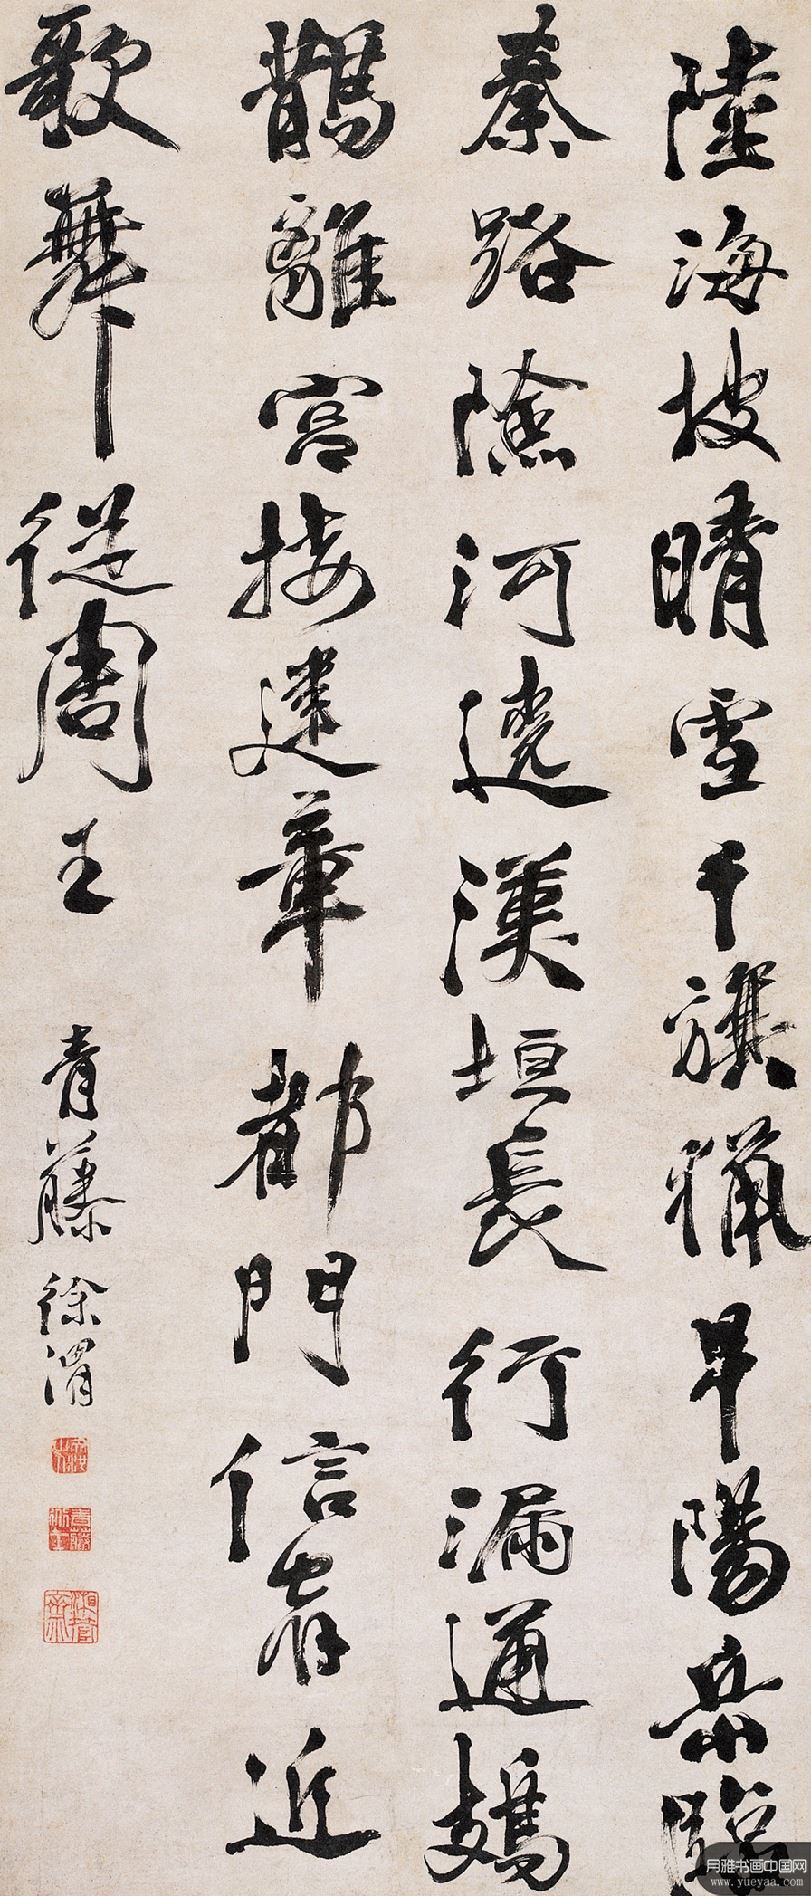 陸海披晴雪千旗獵早陽岳臨
秦路險河遶漢垣長行漏通鳷
鵲離宮接建章都門信宿近
歌舞從周王
青藤徐渭
月雅书画中国网
www.yueyaa.com